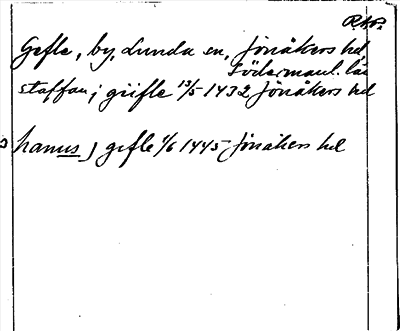 RAP.
Gefle, by, Lunda sn, Jönåkers hd
Södermanl. län
staffan j giifle 13/5 1432 Jönåkers hd
hanus j gefle 1/6 1445 Jönåkers hd